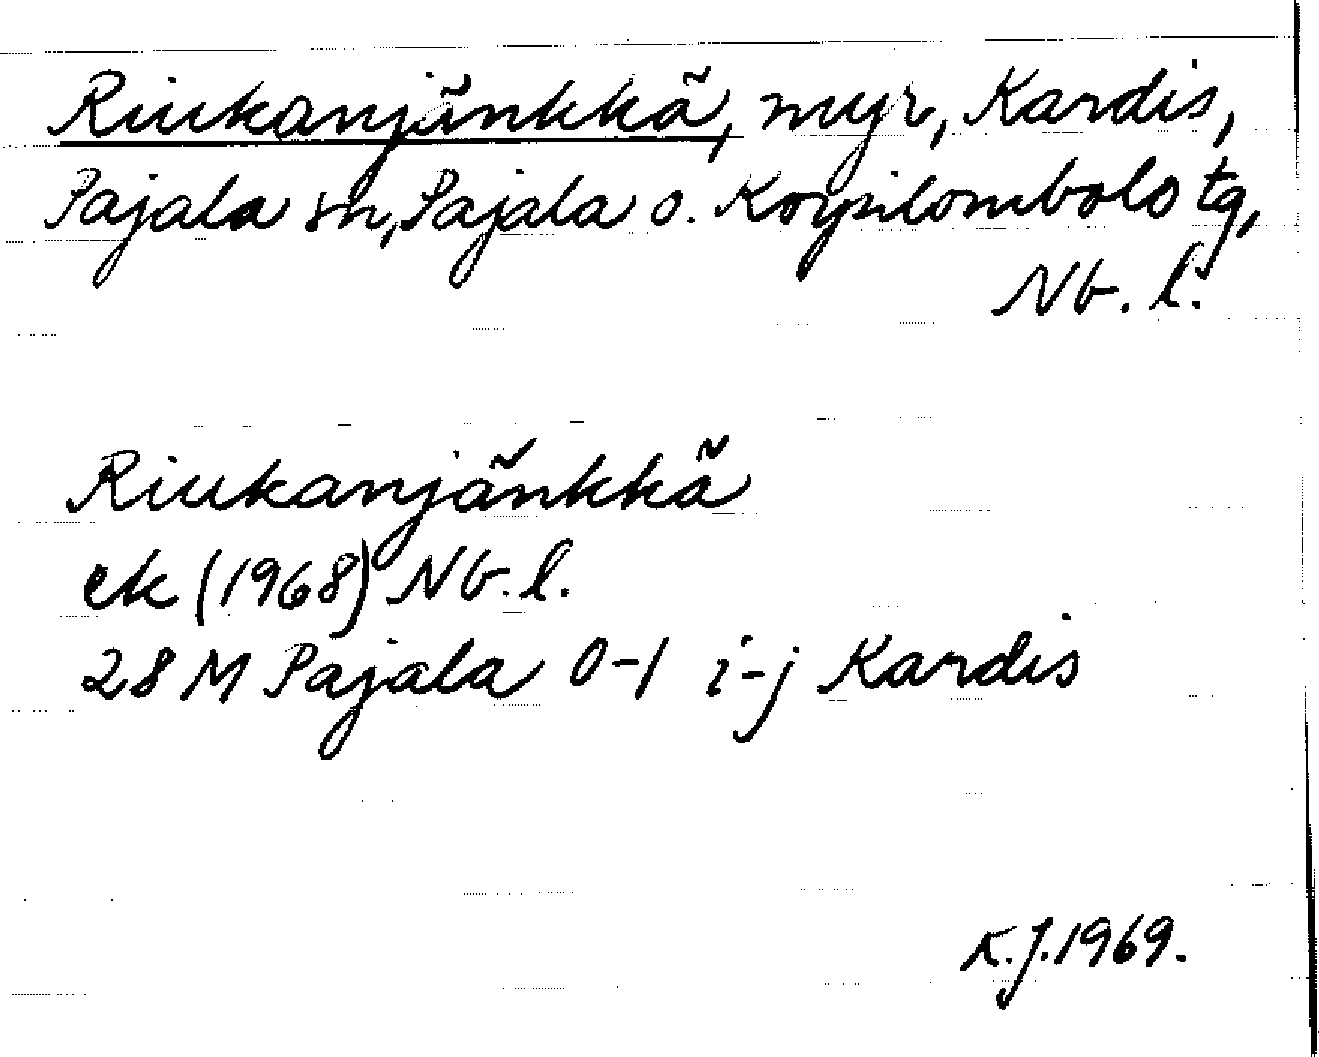 Riukanjänkkä, myr, Kardis,
Pajala sn, Pajala o. Korpilombolo tg,
Nb. l.
Riukanjänkkä
ek (1968) Nb. l.
28 M Pajala 0-1 i-j Kardis
K.J. 1969.